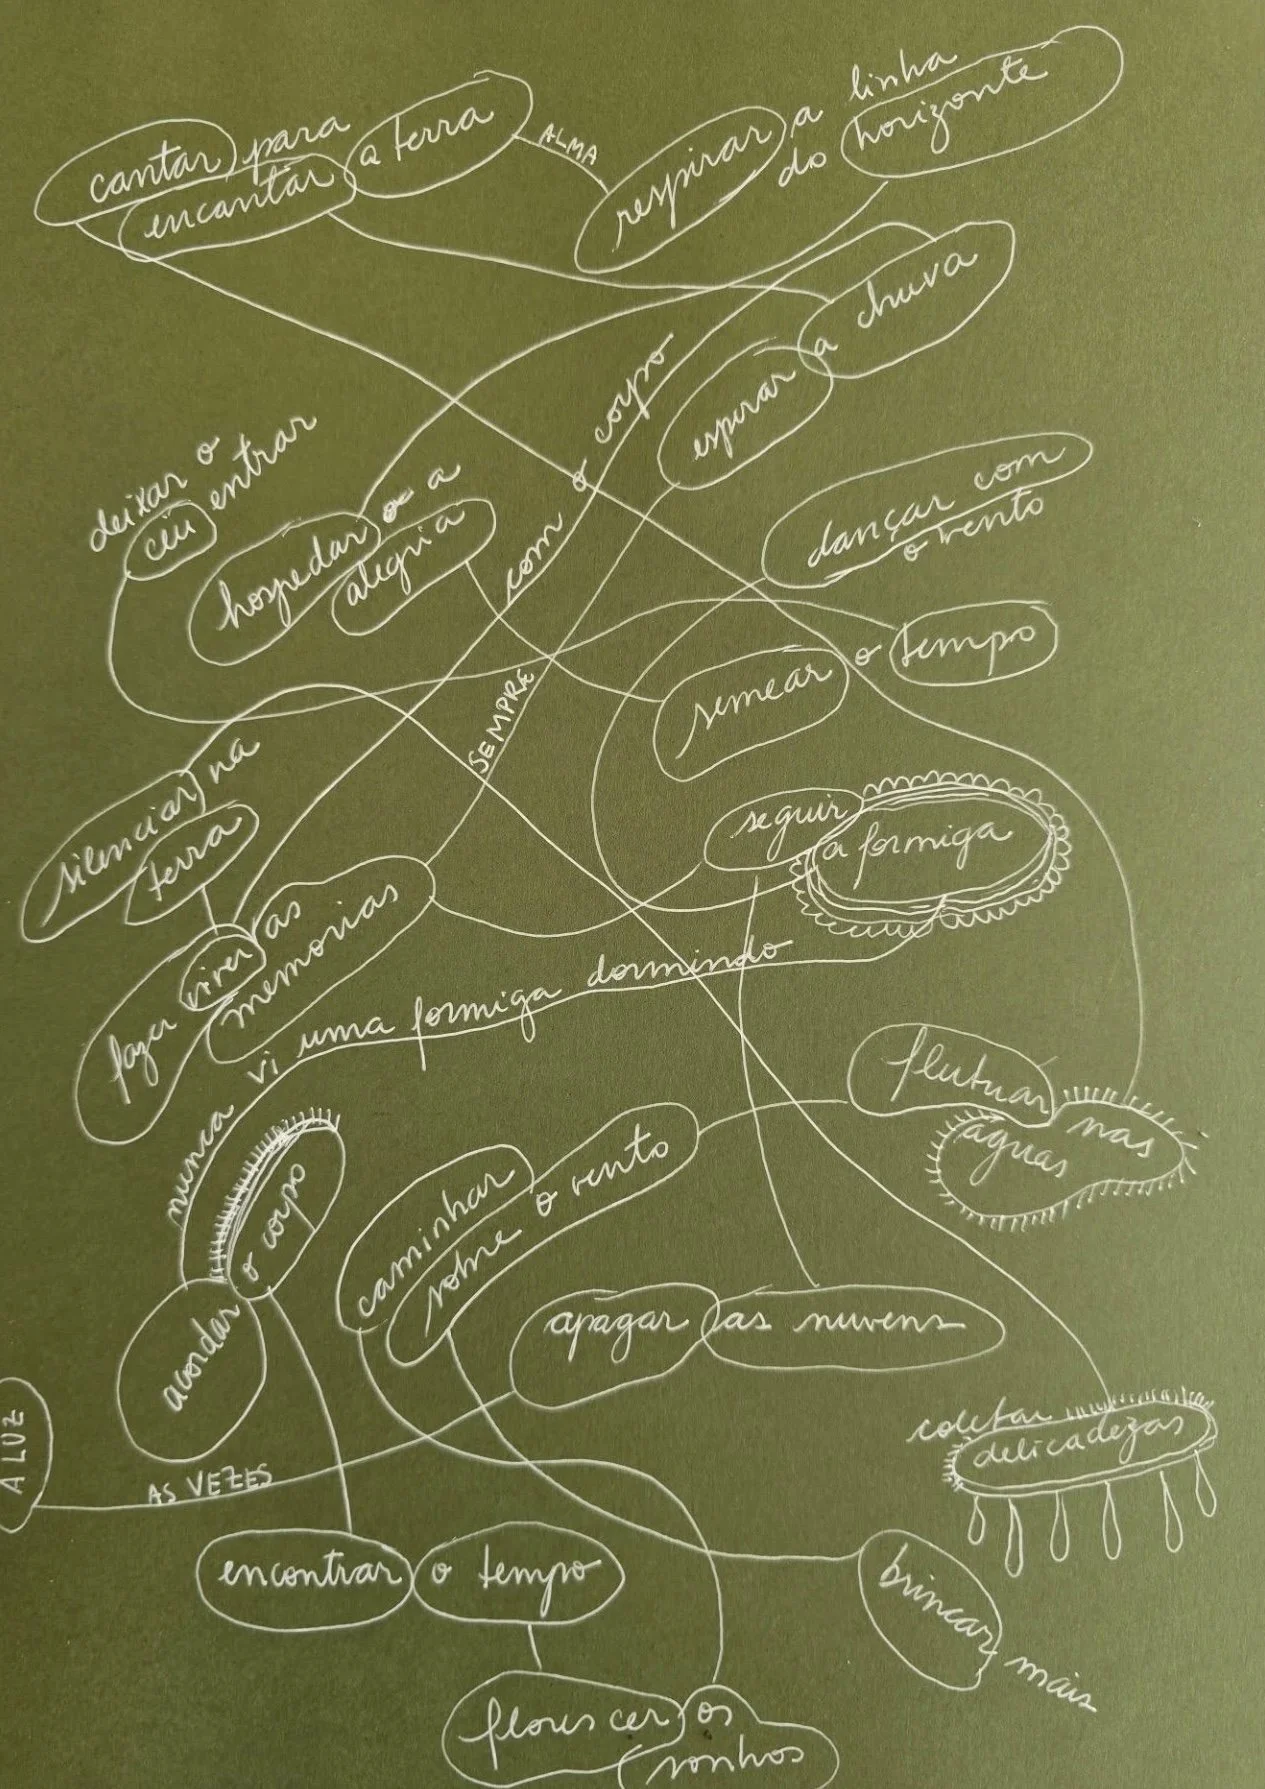 cantar para
encantar a terra
ALMA
respirar a linha
do horizonte
esperar a chuva
com o corpo
deixar o
céu entrar
hospedar a
alegria
dançar com
o vento
semear o tempo
SEMPRE
silenciar na
terra
seguir
a formiga
fazer viver as
memorias
nunca vi uma formiga dormindo
flutuar nas
águas
acordar o corpo
caminhar
sobre o vento
apagar as nuvens
A LUZ
AS VEZES
coletar
delicadezas
encontrar o tempo
brincar mais
florescer os
sonhos